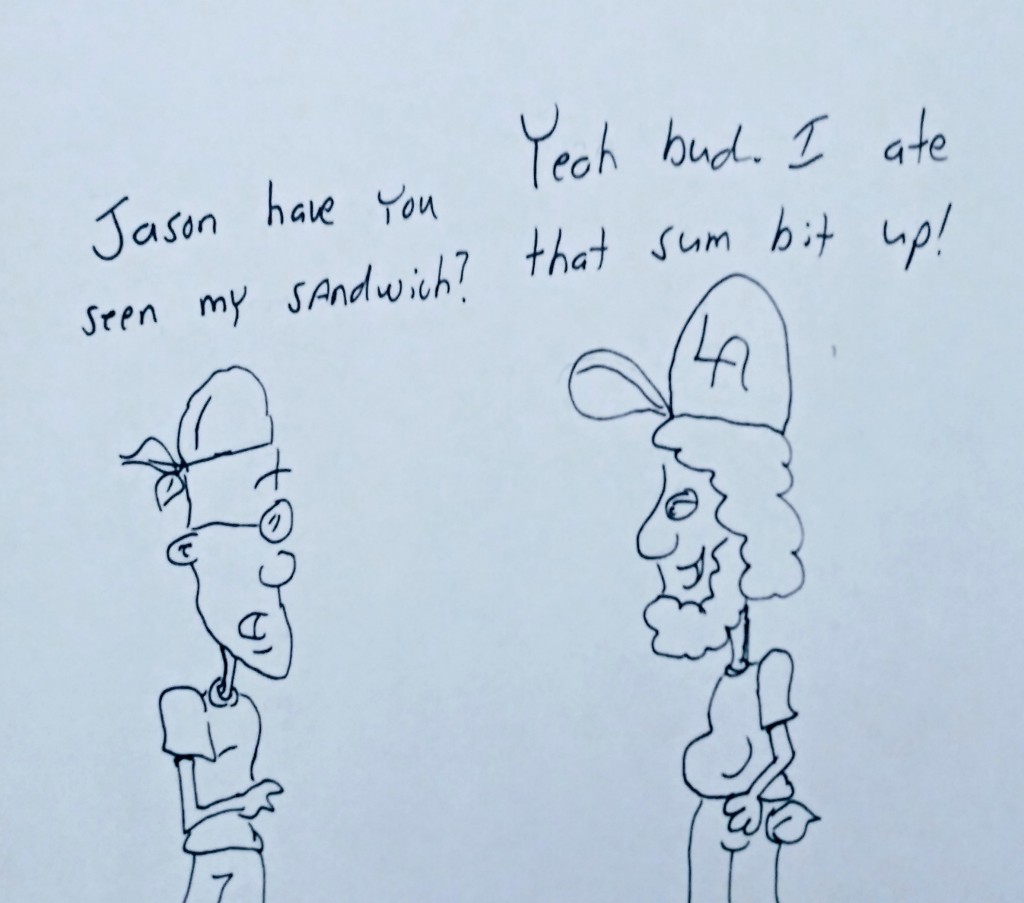 Jason have You
seen my sandwich?
Yeah bud. I ate
that sum bit up!